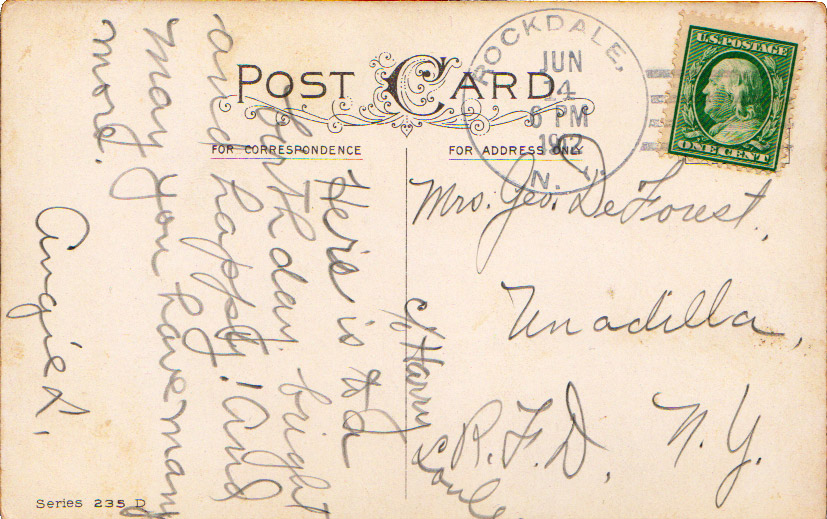 POST CARD
ROCKDALE,
JUN
4
6 PM
1912
N. Y.
U.S. POSTAGE
ONE CENT
FOR CORRESPONDENCE
FOR ADDRESS ONLY
Here is to a
birthday. bright
and happy! and
may you have many
more.
Angie D.
Mrs. Geo. DeForest,
Unadilla,
R.F.D. N.Y.
c/o Harry
Series 235 D